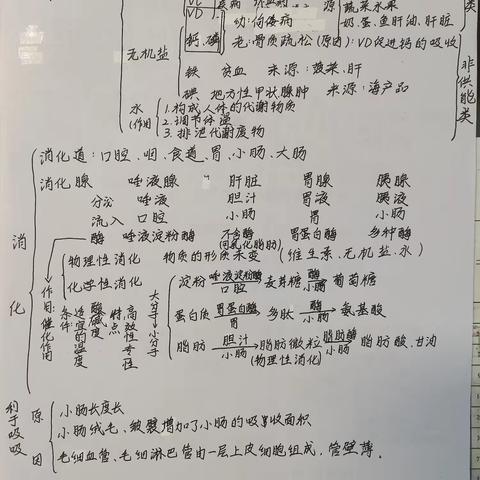 VD
幼:佝偻病
奶、蛋、鱼肝油、肝脏
类
钙、磷
老:骨质疏松(原因):VD促进钙的吸收
无机盐
铁 贫血 来源:菠菜、肝
碘 地方性甲状腺肿 来源:海产品
非供能类
水(作用)
1.构成人体的代谢物质
2.调节体温
3.排泄代谢废物
消化
消化道:口腔、咽、食道、胃、小肠、大肠
消化腺 唾液腺 肝脏 胃腺 胰腺
分泌 唾液 胆汁 胃液 胰液
流入 口腔 小肠 胃 小肠
酶 唾液淀粉酶 不含酶 胃蛋白酶 多种酶
(可乳化脂肪)
物理性消化 物质的形质未变 (维生素、无机盐、水)
化学性消化
作用:催化作用
条件:适宜的温度 酸碱度
特点 高效性 专一性
大分子→小分子
淀粉 唾液淀粉酶 口腔 麦芽糖 酶 小肠 葡萄糖
蛋白质 胃蛋白酶 胃 多肽 酶 小肠 氨基酸
脂肪 胆汁 小肠 脂肪微粒 脂肪酶 小肠 脂肪酸、甘油
(物理性消化)
利于吸收
原因
小肠长度长
小肠绒毛、皱襞增加了小肠的吸收面积
毛细血管、毛细淋巴管由一层上皮细胞组成,管壁薄。